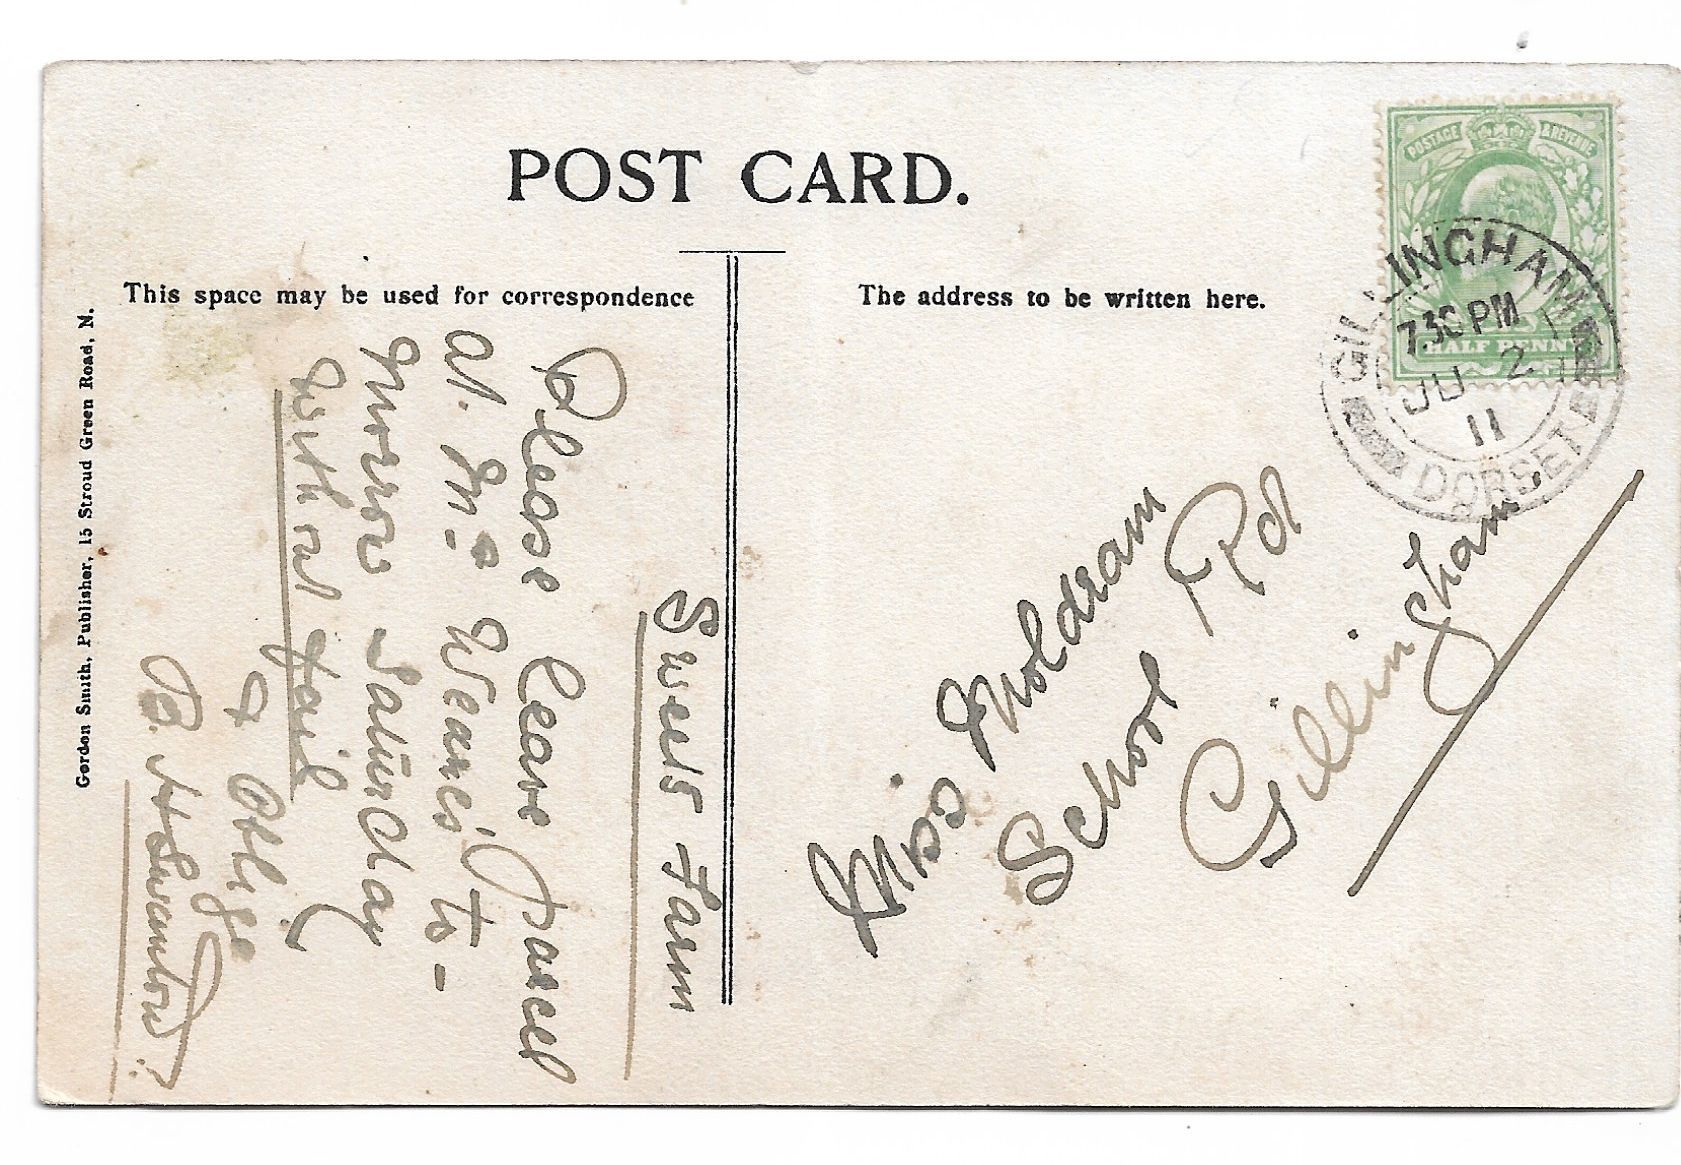 POST CARD.
This space may be used for correspondence
The address to be written here.
Gordon Smith, Publisher, 15 Stroud Green Road, N.
POSTAGE & REVENUE
HALF PENNY
GILLINGHAM
7.30 PM
JU 2
11
DORSET
Sweets Farm
Please leave parcel
at Mrs to-
morrow Saturday
without fail
& Oblige
B.
Miss Moldram
School Rd
Gillingham